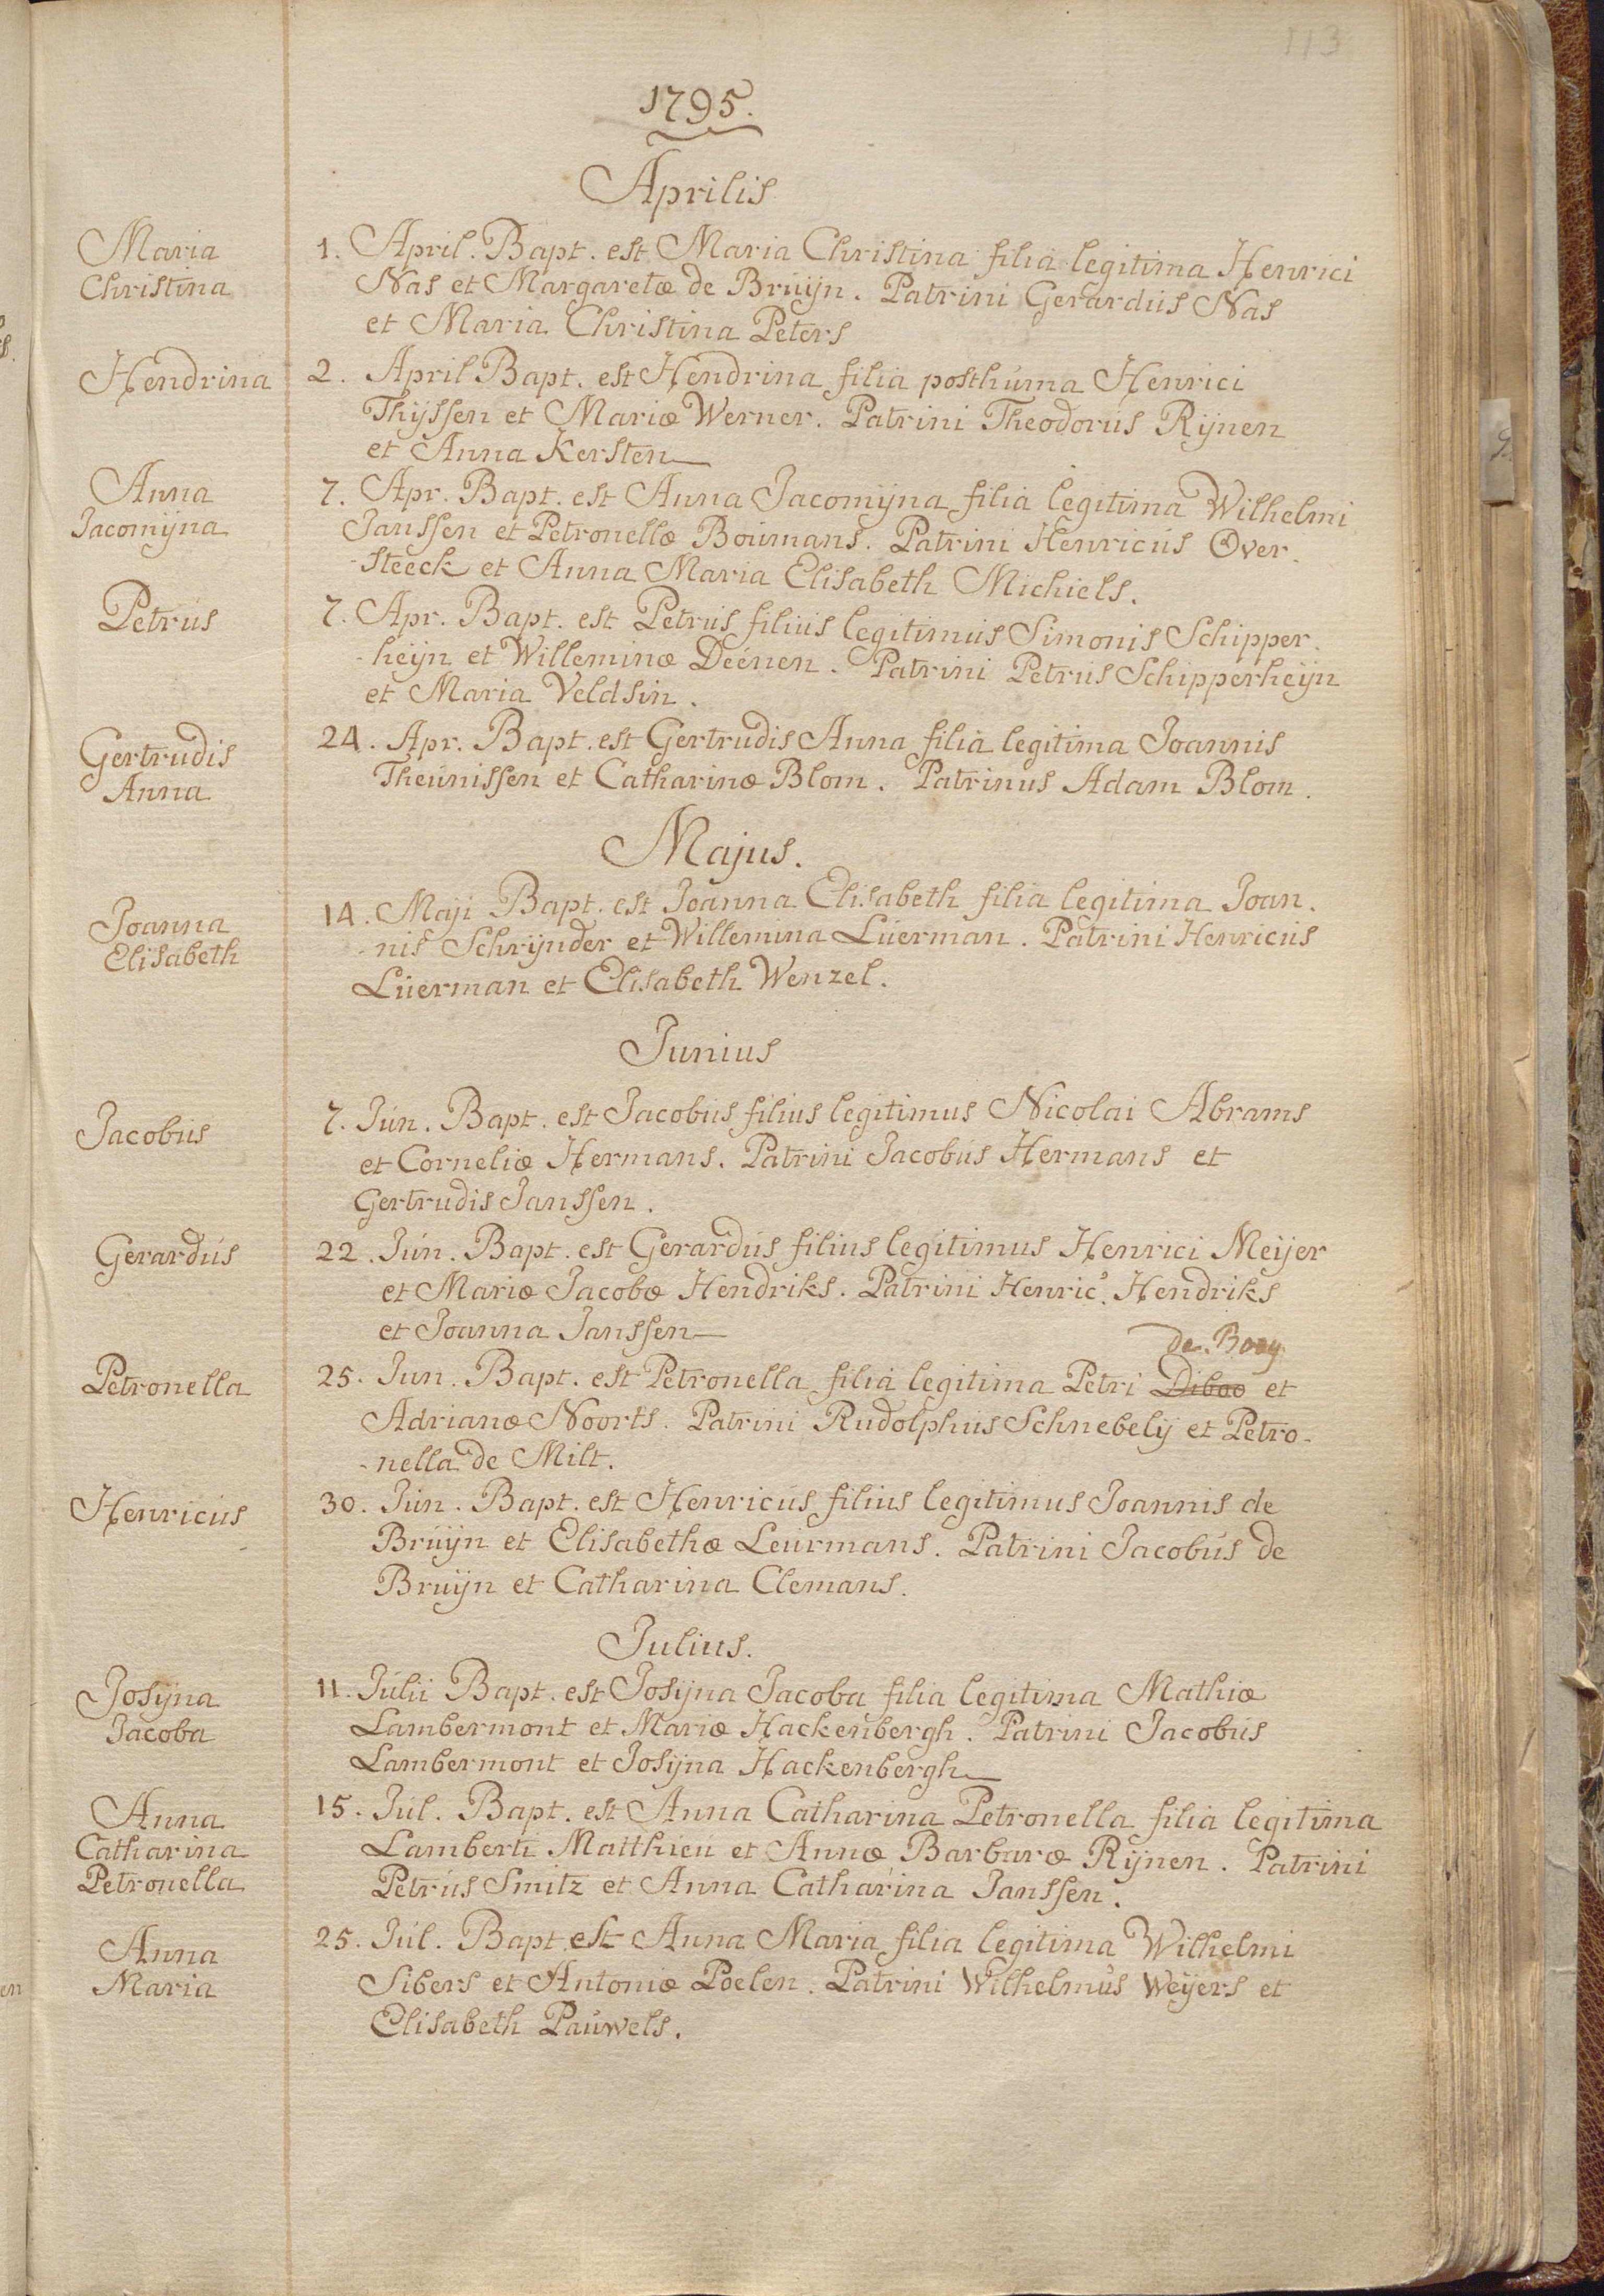 113
1795.
Aprilis
Maria
Christina
1. April. Bapt. est Maria Christina filia legitima Henrici
Nas et Margaretæ de Bruijn. Patrini Gerardus Nas
et Maria Christina Peters
Hendrina
2. April Bapt. est Hendrina filia posthuma Henrici
Thijssen et Mariæ Werner. Patrini Theodorus Rijnen
et Anna Kersten
Anna
Jacomijna
7. Apr. Bapt. est Anna Jacomijna filia legitima Wilhelmi
Janssen et Petronellæ Boumans. Patrini Henricus Over.
-steeck et Anna Maria Elisabeth Michiels.
Petrus
7. Apr. Bapt. est Petrus filius legitimus Simonis Schipper.
-heijn et Willeminæ Deenen. Patrini Petrus Schipperheijn
et Maria Veldsin.
Gertrudis
Anna
24. Apr. Bapt. est Gertrudis Anna filia legitima Joannis
Theunissen et Catharinæ Blom. Patrinus Adam Blom.
Majus.
Joanna
Elisabeth
14. Maji Bapt. est Joanna Elisabeth filia legitima Joan.
-nis Schrijnder et Willemina Luerman. Patrini Henricus
Luerman et Elisabeth Wenzel.
Junius
Jacobus
7. Jun. Bapt. est Jacobus filius legitimus Nicolai Abrams
et Corneliæ Hermans. Patrini Jacobus Hermans et
Gertrudis Janssen.
Gerardus
22. Jun. Bapt. est Gerardus filius legitimus Henrici Meijer
et Mariæ Jacobæ Hendriks. Patrini Henric⁹. Hendriks
et Joanna Janssen
de Booy
Petronella
25. Jun. Bapt. est Petronella filia legitima Petri Diboo et
Adrianæ Noorts. Patrini Rudolphus Schnebelij et Petro-
-nella de Milt.
Henricus
30. Jun. Bapt. est Henricus filius legitimus Joannis de
Bruijn et Elisabethæ Leurmans. Patrini Jacobus de
Bruijn et Catharina Clemans.
Julius.
Josijna
Jacoba
11. Julii Bapt. est Josijna Jacoba filia legitima Mathiæ
Lambermont et Mariæ Hackenbergh. Patrini Jacobus
Lambermont et Josijna Hackenbergh
Anna
Catharina
Petronella
15. Jul. Bapt. est Anna Catharina Petronella filia legitima
Lamberti Matthieu et Annæ Barbaræ Rijnen. Patrini
Petrus Smitz et Anna Catharina Janssen.
Anna
Maria
25. Jul. Bapt. est Anna Maria filia legitima Wilhelmi
Sibers et Antoniæ Poelen. Patrini Wilhelmus Weijers et
Elisabeth Pauwels.